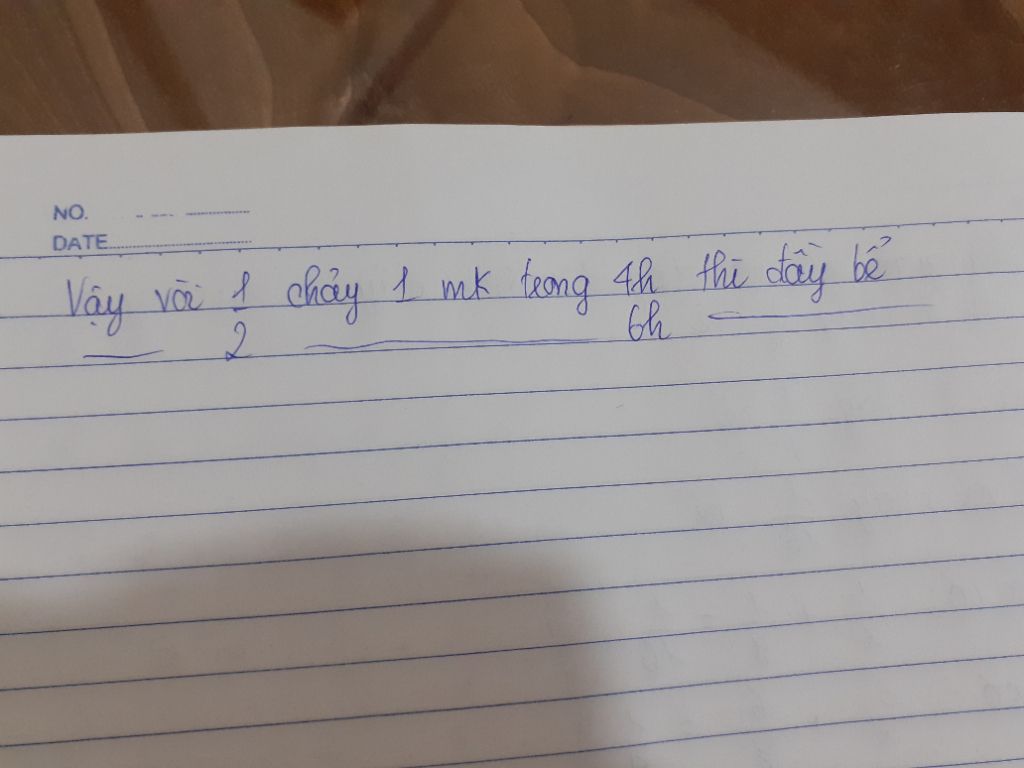 NO.
DATE
Vậy vòi 1 chảy 1 mk trong 4h thì đầy bể
2 6h